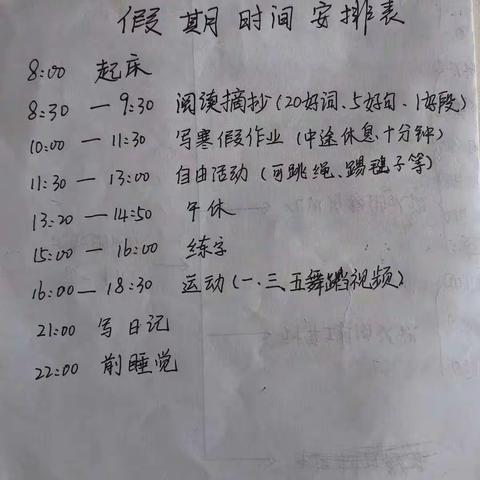 假期时间安排表
8:00 起床
8:30 — 9:30 阅读摘抄(20好词、5好句、1好段)
10:00 — 11:30 写寒假作业(中途休息十分钟)
11:30 — 13:00 自由活动(可跳绳、踢毽子等)
13:20 — 14:50 午休
15:00 — 16:00 练字
16:00 — 18:30 运动(一、三、五舞蹈视频)
21:00 写日记
22:00 前睡觉